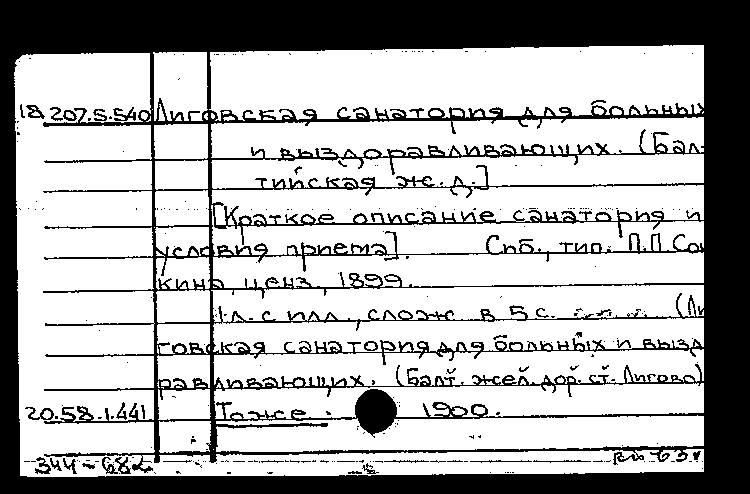 18 207.5.540 Лиговская санатория для больных
и выздоравливающих. (Бал-
тийская ж.д.]
[Краткое описание санатория и
условия приема]. Спб., тип. П.П. Сой
кина, ценз., 1899.
1 л. с илл., слож. в 5 с. (Ли
говская санатория для больных и вызд
равливающих. (Балт. жел. дор. ст. Лигово)
20.58.1.441 То же. 1900.
344-682